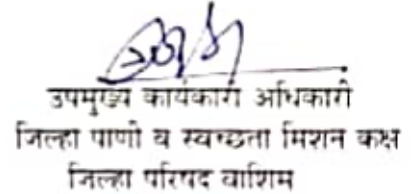 उपमुख्य कार्यकारी अधिकारी
जिल्हा पाणी व स्वच्छता मिशन कक्ष
जिल्हा परिषद वाशिम